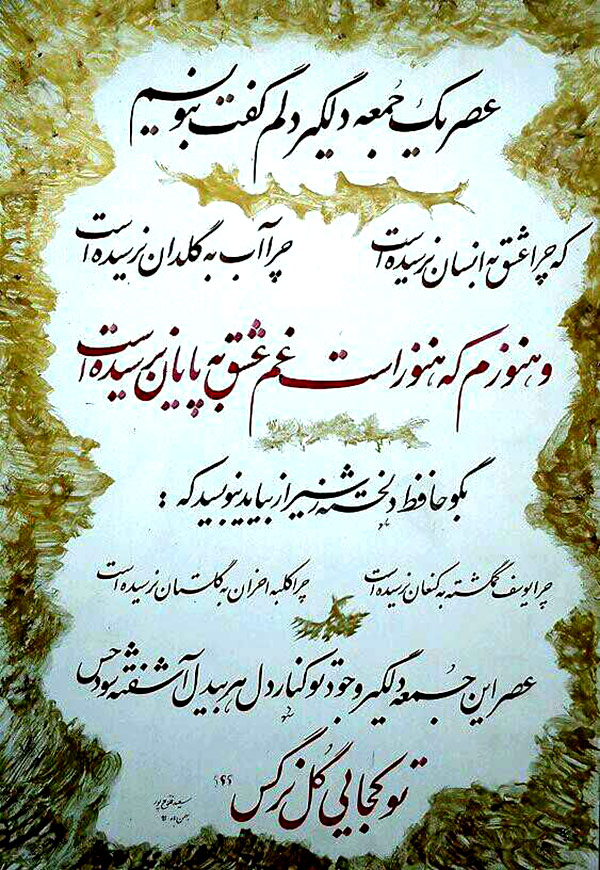 عصر یک جُمعه دلگیر دلم گفت بنویسم
که چرا عشق به انسان نرسیده است چرا آب به گلدان نرسیده است
و هنوزم که هنوز است غم عشق به پایان نرسیده است
بگو حافظ دلخسته ز شیراز بیاید بنویسید که :
چرا یوسف گمگشته به کنعان نرسیده است چرا کلبه احزان به گلستان نرسیده است
عصر این جُمعه دلگیر وجود تو کنار دل هر بیدل آشفته شود حس
تو کجایی گُل نرگس ؟؟
سعید
بهمن ماه ۹۱